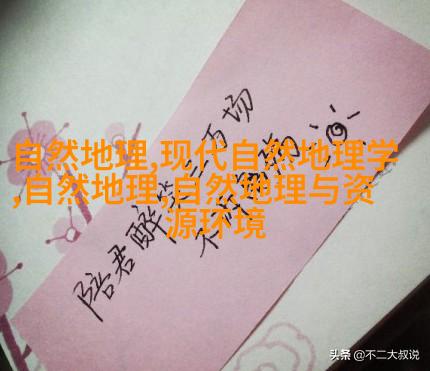 自然地理,现代自然地理学
,自然地理,自然地理与资
源环境
陪君醉笑三 场
不诉
头条 @不二大叔说